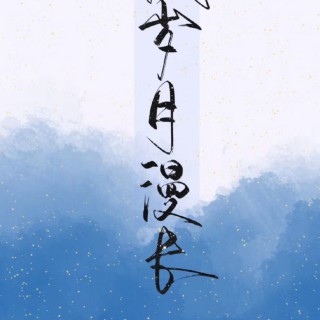 岁月漫长